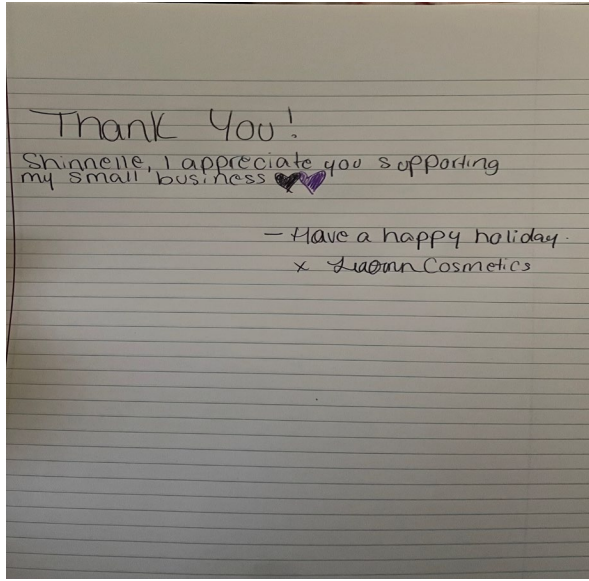 Thank You!
Shinnelle, I appreciate you supporting
my small business 🖤💜
— Have a happy holiday.
x Cosmetics